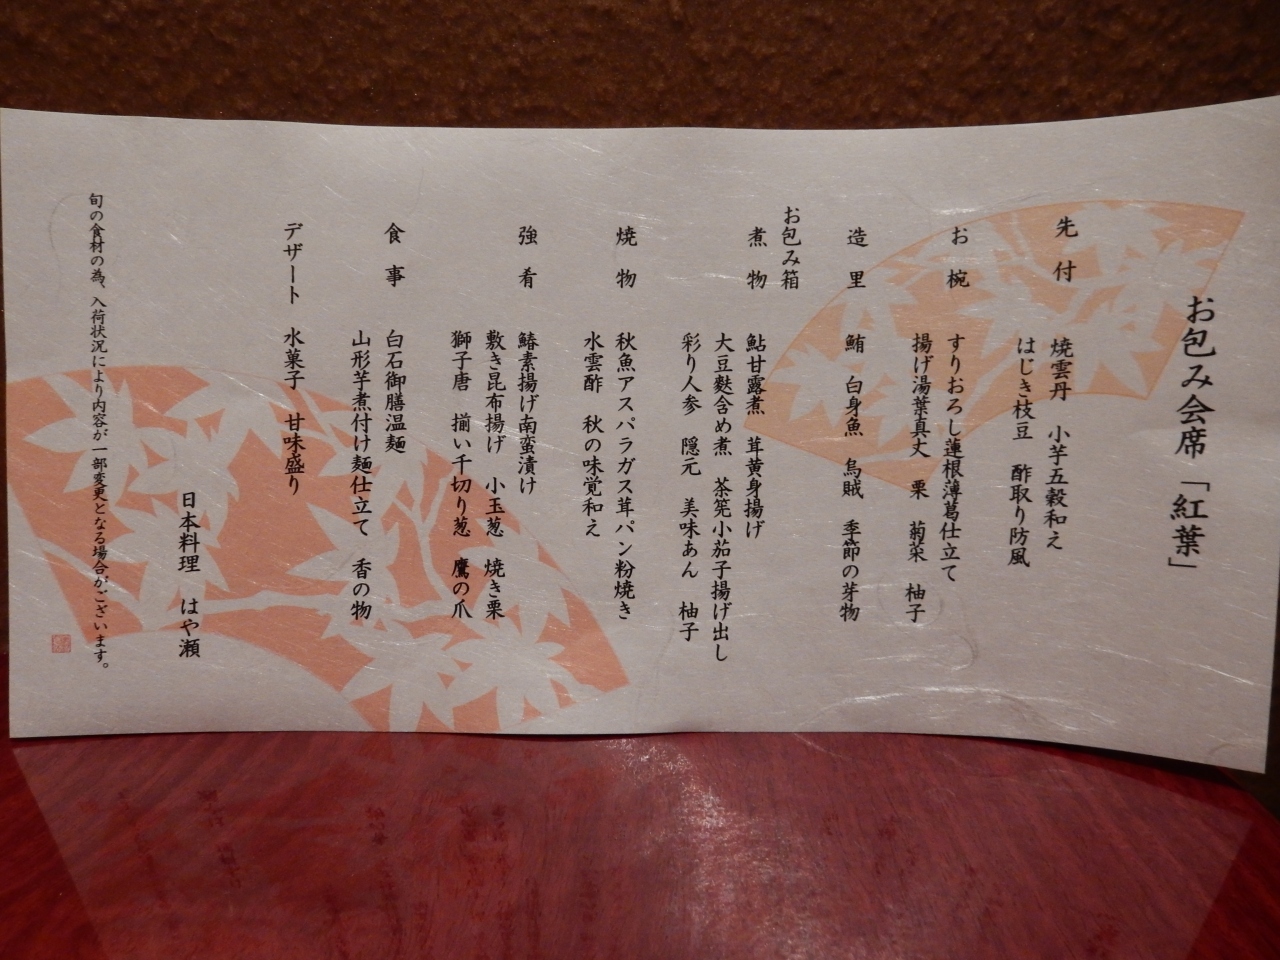 お包み会席「紅葉」
先付　焼雲丹　小芋五穀和え
はじき枝豆　酢取り防風
お椀　すりおろし蓮根薄葛仕立て
揚げ湯葉真丈　栗　菊菜　柚子
造里　鮪　白身魚　烏賊　季節の芽物
お包み箱
煮物　鮎甘露煮　茸黄身揚げ
大豆麩含め煮　茶筅小茄子揚げ出し
彩り人参　隠元　美味あん　柚子
焼物　秋魚アスパラガス茸パン粉焼き
水雲酢　秋の味覚和え
強肴　鰆素揚げ南蛮漬け
敷き昆布揚げ　小玉葱　焼き栗
獅子唐　揃い千切り葱　鷹の爪
食事　白石御膳温麺
山形芋煮付け麺仕立て　香の物
デザート　水菓子　甘味盛り
日本料理　はや瀬
旬の食材の為、入荷状況により内容が一部変更となる場合がございます。